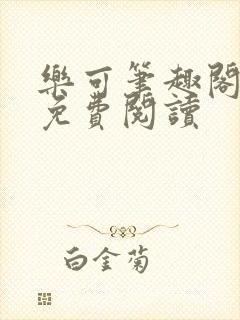 樂可筆趣閣
免費閱讀
白金菊